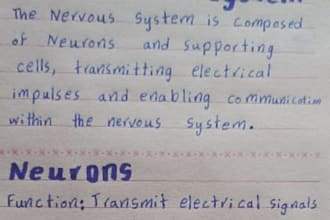 The Nervous System is composed
of Neurons and supporting
cells, transmitting electrical
impulses and enabling communication
within the nervous system.
Neurons
Function: Transmit electrical signals